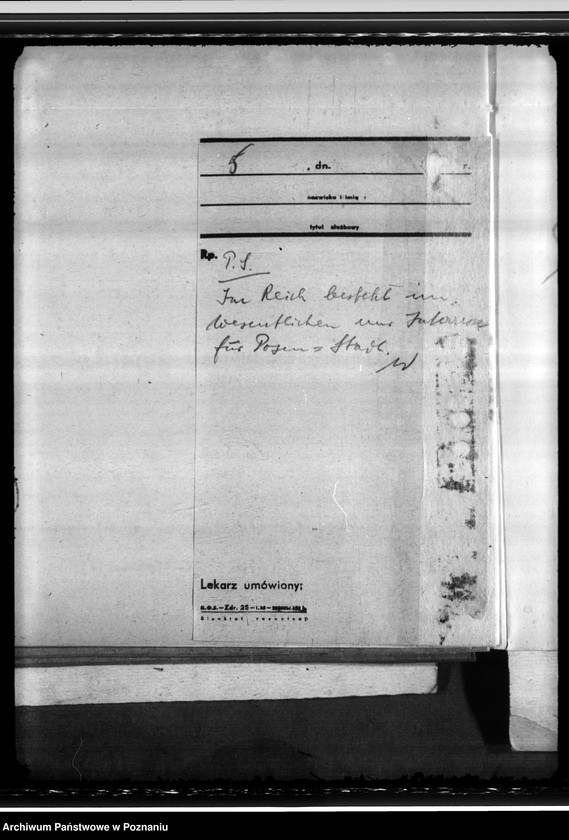 5 , dn. r.
nazwisko i imię
tytuł służbowy
Rp. P.S.
Im Reich besteht im
wesentlichen nur Interesse
für Posen = Stadt.
Lekarz umówiony:
Blankiet
Archiwum Państwowe w Poznaniu